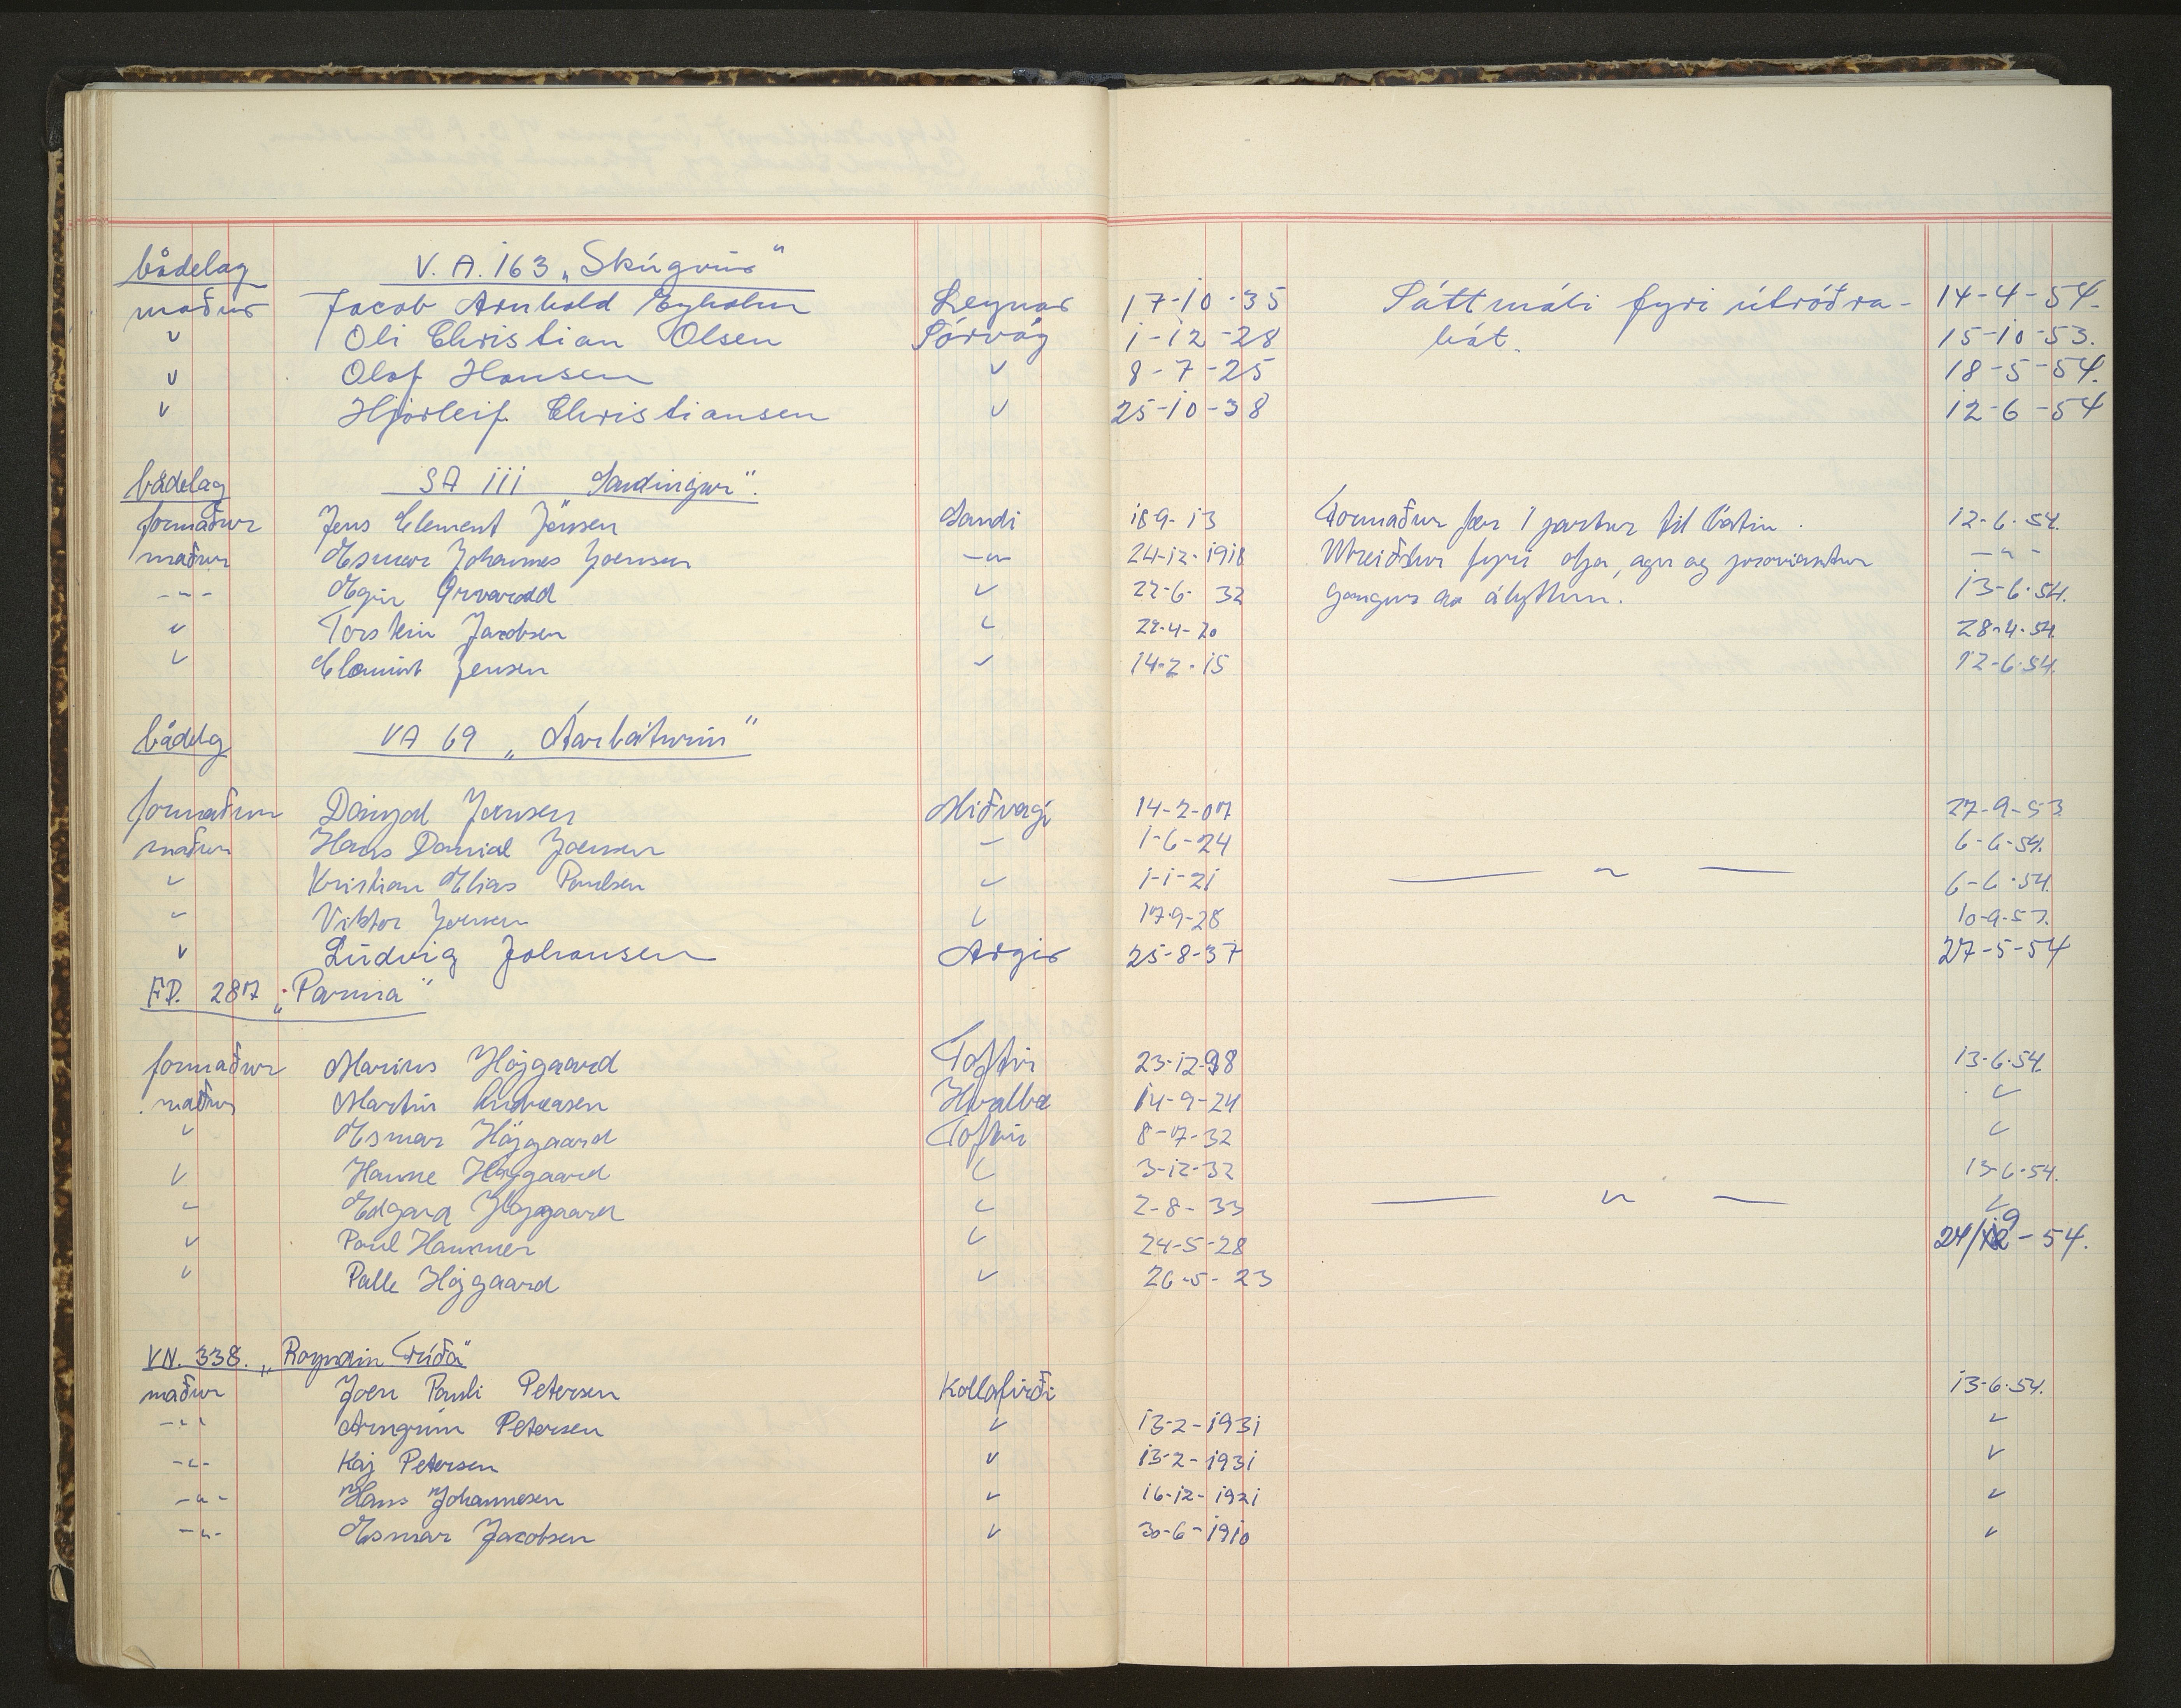 bådelag V. A. 163 „Skúgvur“
maður Jacob Arnbold Eyholm Leynar 17-10-35 Sáttmáli fyri útróðra- 14-4-54.
v Oli Christian Olsen Sørvág 1-12-28 bát. 15-10-53.
v Olaf Hansen v 8-7-25 18-5-54.
v Hjørleif Christiansen v 25-10-38 12-6-54
bådelag SA 111 Sandingur“.
formaður Jens Clement Jensen Sandi 18 9-13 Formaður fær 1 partur til bátin. 12-6.54.
maður Esmar Johannes Joensen -"- 24-12-1918 Útreiðslur fyri olja, agn og proviantur -"-
-"- Egin v 22-6-32 gongur av óbýttum. 13-6-54.
v Torstein Jacobsen v 22-4-20 28-4-54.
v Clemint Jensen v 14-2-15 12-6-54.
bådelg VA 69 „Aarbáturin“
formaður Dánjal Joensen Miðvagi 14-2-07 27-9-53
maður Hans Danial Joensen - 1-6-24 6-6-54.
v Kristian Elias Poulsen v 1-1-21 — " — 6-6-54.
v Viktor Joensen v 17-9-28 10-9-53.
v Lúdvig Johansen Argir 25-8-37 27-5-54
FD. 287 „Parma“
formaður Marius Højgaard Toftir 23-12-98 13-6-54
maður Martin Andreasen Hvalba 14-9-24 v
v Esmar Højgaard Toftir 8-7-32 v
v Hanne Højgaard v 3-12-32 13-6-54.
v Edgard Højgaard v 2-8-33 — " — v
v Poul Hammer v 24-5-28 24/9-54.
v Palle Højgaard v 26-5-23
VN. 338. „Royndin Fríða“
maður Joen Pauli Petersen Kollafirði 13-6-54.
-"- Arngrim Petersen v 13-2-1931 v
-"- Kaj Petersen v 13-2-1931 v
-"- Hans Johannesen v 16-12-1921 v
-"- Esmar Jacobsen v 30-6-1910 v